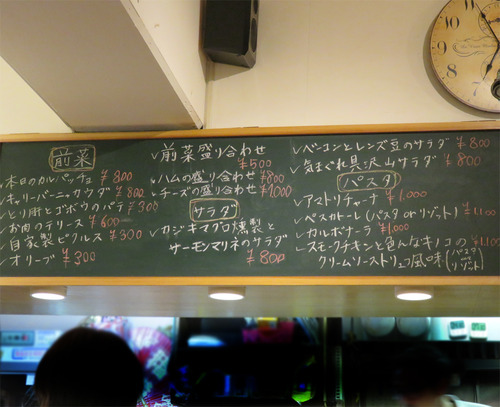 前菜
✓本日のカルパッチョ ¥800
✓キャリーバーニャカウダ ¥800
✓とり肝とゴボウのパテ ¥300
✓お肉のテリーヌ ¥600
✓自家製ピクルス ¥300
✓オリーブ ¥300
✓前菜盛り合わせ
¥500
✓ハムの盛り合わせ ¥800
✓チーズの盛り合わせ ¥1,000
サラダ
✓カジキマグロ燻製と
サーモンマリネのサラダ
¥800
✓ベーコンとレンズ豆のサラダ ¥800
✓気まぐれ具沢山サラダ ¥800
パスタ
✓アマトリチャーナ ¥1,000
✓ペスカトーレ(パスタorリゾット) ¥1,100
✓カルボナーラ ¥1,000
✓スモークチキンと色んなキノコの ¥1,100
クリームソーストリュフ風味(パスタorリゾット)